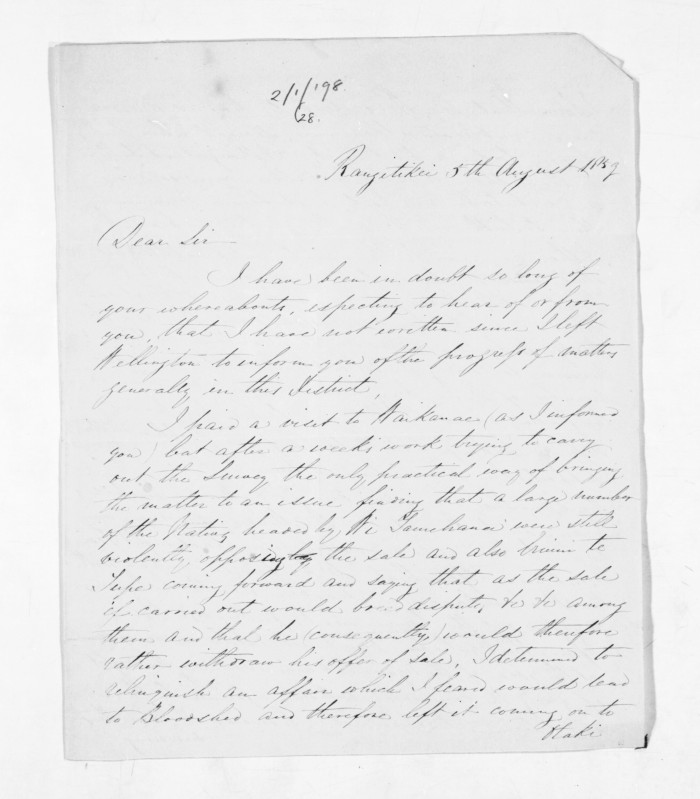 2/1/198.
28.
Rangitikei 5th August 1859
Dear Sir
I have been in doubt so long of
your whereabouts, expecting to hear of or from
you, that I have not written since I left
Wellington to inform you of the progress of matters
generally in this District,
I paid a visit to Waikanae (as I informed
you) but after a weeks work trying to carry
out the Survey the only practical way of bringing
the matter to an issue finding that a large number
of the Natives headed by Wi Tamehana were still
violently opposing the sale and also
coming forward and saying that as the sale
if carried out would breed disputes, &c &c among
them and that he (consequently) would therefore
rather withdraw his offer of sale, I determined to
relinquish an affair which I feared would lead
to Bloodshed and therefore left it coming on to
Otaki